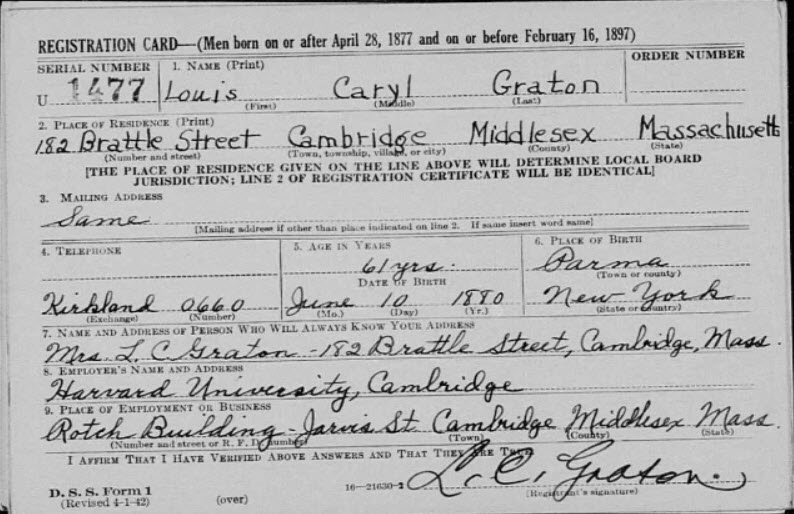 REGISTRATION CARD—(Men born on or after April 28, 1877 and on or before February 16, 1897)
SERIAL NUMBER 1. NAME (Print) ORDER NUMBER
U 1477 Louis Caryl Graton
(First) (Middle) (Last)
2. PLACE OF RESIDENCE (Print)
182 Brattle Street Cambridge Middlesex Massachusetts
(Number and street) (Town, township, village, or city) (County) (State)
[THE PLACE OF RESIDENCE GIVEN ON THE LINE ABOVE WILL DETERMINE LOCAL BOARD
JURISDICTION; LINE 2 OF REGISTRATION CERTIFICATE WILL BE IDENTICAL]
3. MAILING ADDRESS
Same
[Mailing address if other than place indicated on line 2. If same insert word same]
4. TELEPHONE 5. AGE IN YEARS 6. PLACE OF BIRTH
61 yrs. Parma
DATE OF BIRTH (Town or county)
Kirkland 0660 June 10 1880 New York
(Exchange) (Number) (Mo.) (Day) (Yr.) (State or country)
7. NAME AND ADDRESS OF PERSON WHO WILL ALWAYS KNOW YOUR ADDRESS
Mrs. L. C. Graton - 182 Brattle Street, Cambridge, Mass.
8. EMPLOYER'S NAME AND ADDRESS
Harvard University, Cambridge
9. PLACE OF EMPLOYMENT OR BUSINESS
Rotch Building - Jarvis St. Cambridge Middlesex Mass.
(Number and street or R. F. D. number) (Town) (County) (State)
I AFFIRM THAT I HAVE VERIFIED ABOVE ANSWERS AND THAT THEY ARE TRUE.
L. C. Graton.
D. S. S. Form 1 16—21630-2 (Registrant's signature)
(Revised 4-1-42) (over)